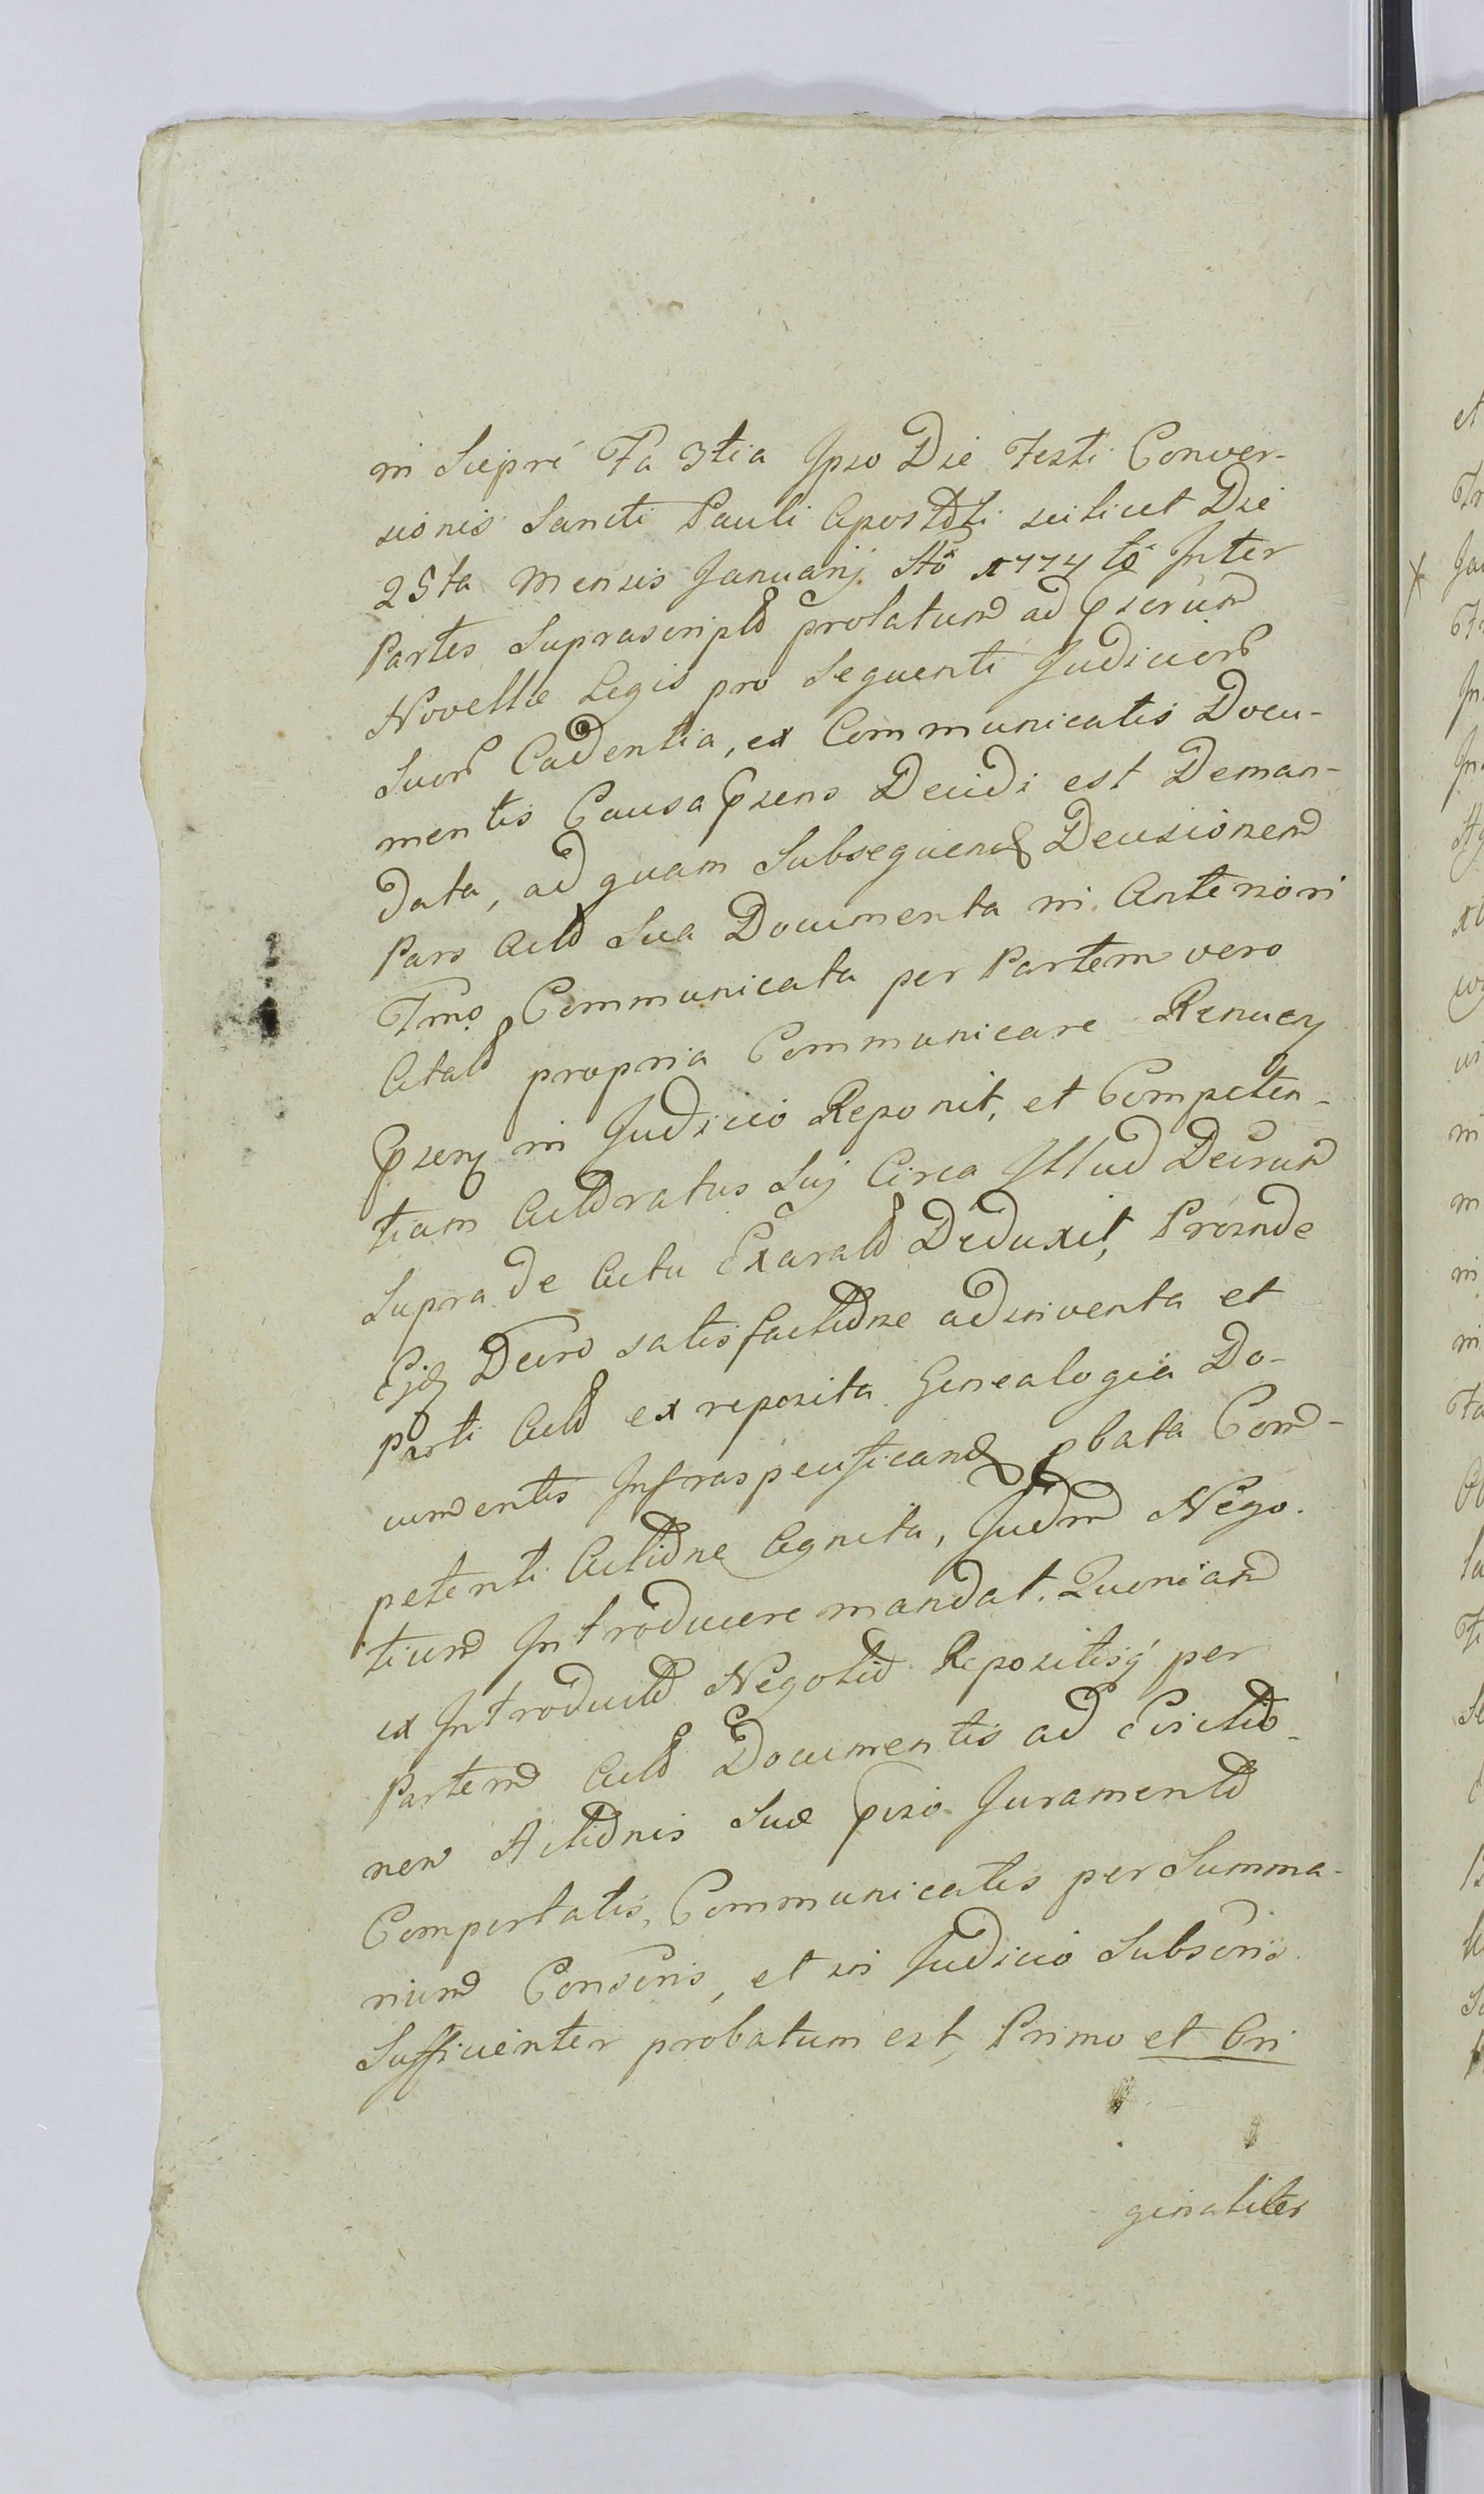 in Siepré Fa 3tia Ipso Die Festi Conver-
sionis Sancti Pauli Apostoli scilicet Die
25ta Mensis Januarij Aō 1774tō Inter
Partes Suprascript prolatum ad
Novellæ Legis pro Sequenti Judicior
Suor Cadentia, ex Communicatis Docu-
mentis Causa Psens Decidi est Deman-
data, ad quam Subsequend Decisionem
Pars Act Sua Documenta in Anteriori
Tmo Communicata per Partem vero
Citat propria Communicare Renuen
Psen in Judicio Reponit, et Competen-
tiam Actoratus Suj Circa Illud Decrum
Supra de Actu Exarat Deduxit, Proinde
Ejd Decro satisfactione adinventa et
Parti Act ex reposita Genealogia Do-
cumentis Infraspecificand pbata Com-
petenti Actione Agnita, Judm Nego-
tium Introducere mandat. Quoniam
ex Introducto Negotio Repositisq per
Partem Act Documentis ad Evictio-
nem Actionis Suæ pviso Juramento
Comportatis, Communicatis per Summa-
rium Conscris, et in Judicio Subscris
Sufficienter probatum est, Primo et Ori
ginaliter